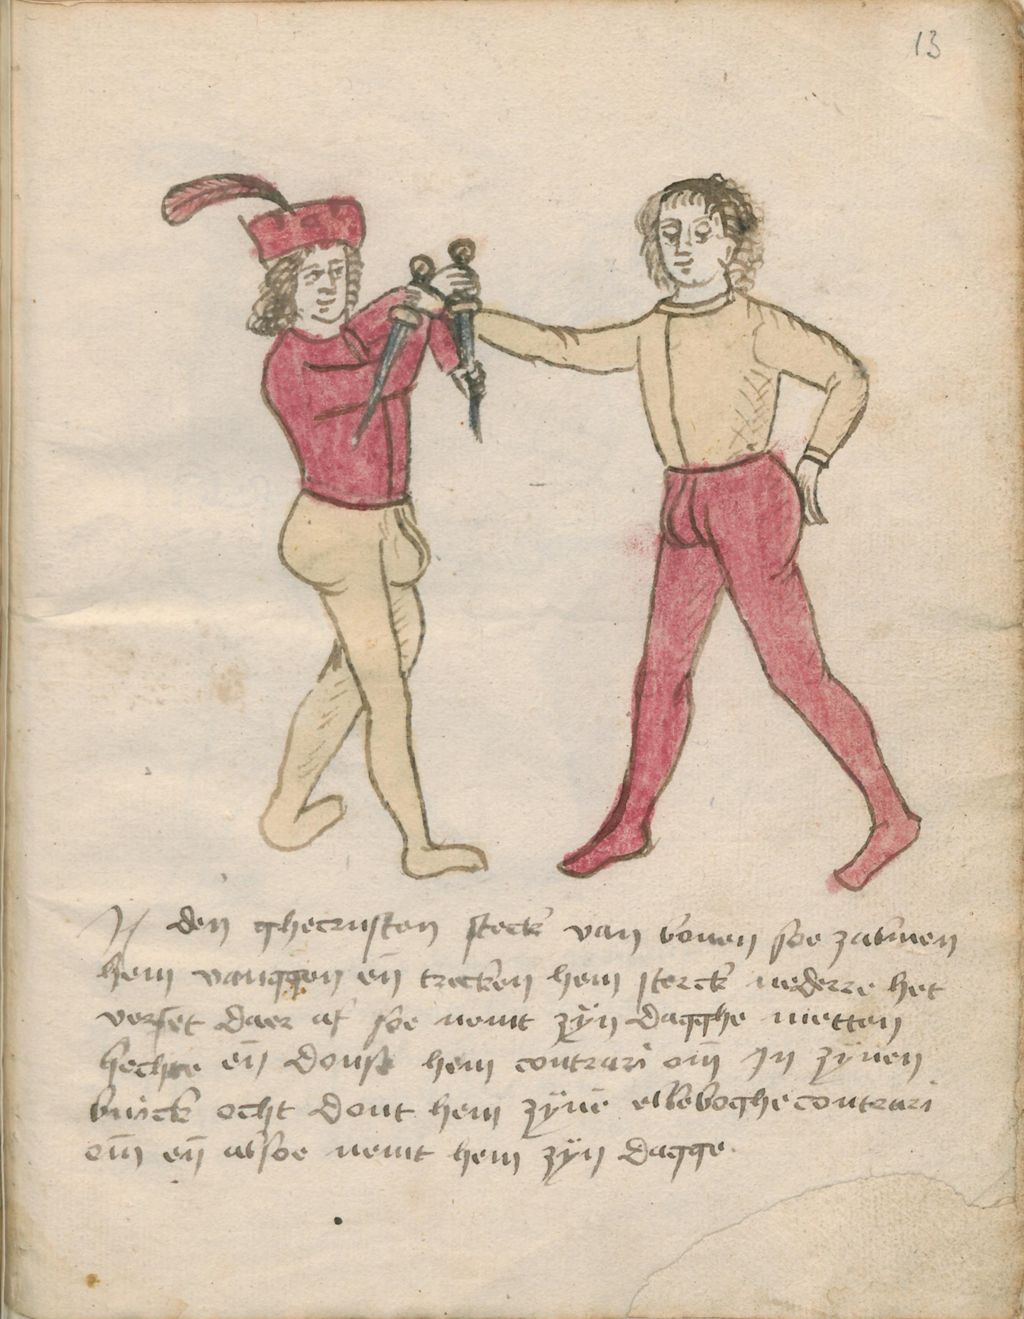 13
In den ghecrusten steck van boven soe zalmen
hem vanggen en̄ trecken hem sterck nederre het
verset daer af soe nemt zÿn dagghe metten
hechte en̄ doust hem contrari om̄ In zÿnen
buick ocht dout hem zÿnē elleboghe contrari
om̄ en̄ alsoe nemt hem zÿn dagge.